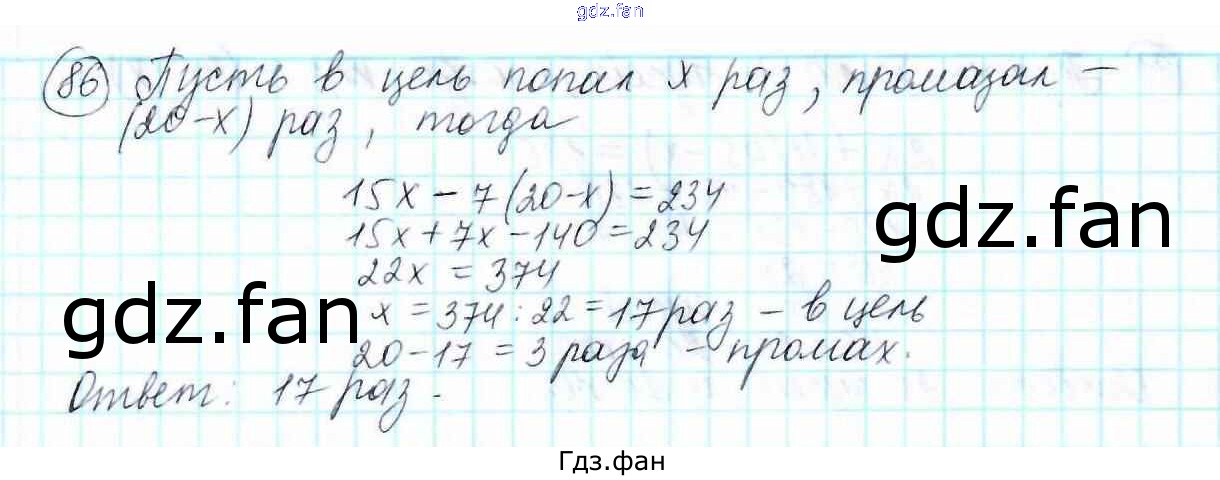 gdz.fan
86 Пусть в цель попал x раз, промазал –
(20-x) раз, тогда
15x - 7(20-x) = 234
15x + 7x - 140 = 234
gdz.fan
22x = 374
gdz.fan
x = 374 : 22 = 17 раз - в цель
20 - 17 = 3 раза - промах.
Ответ: 17 раз.
Гдз.фан